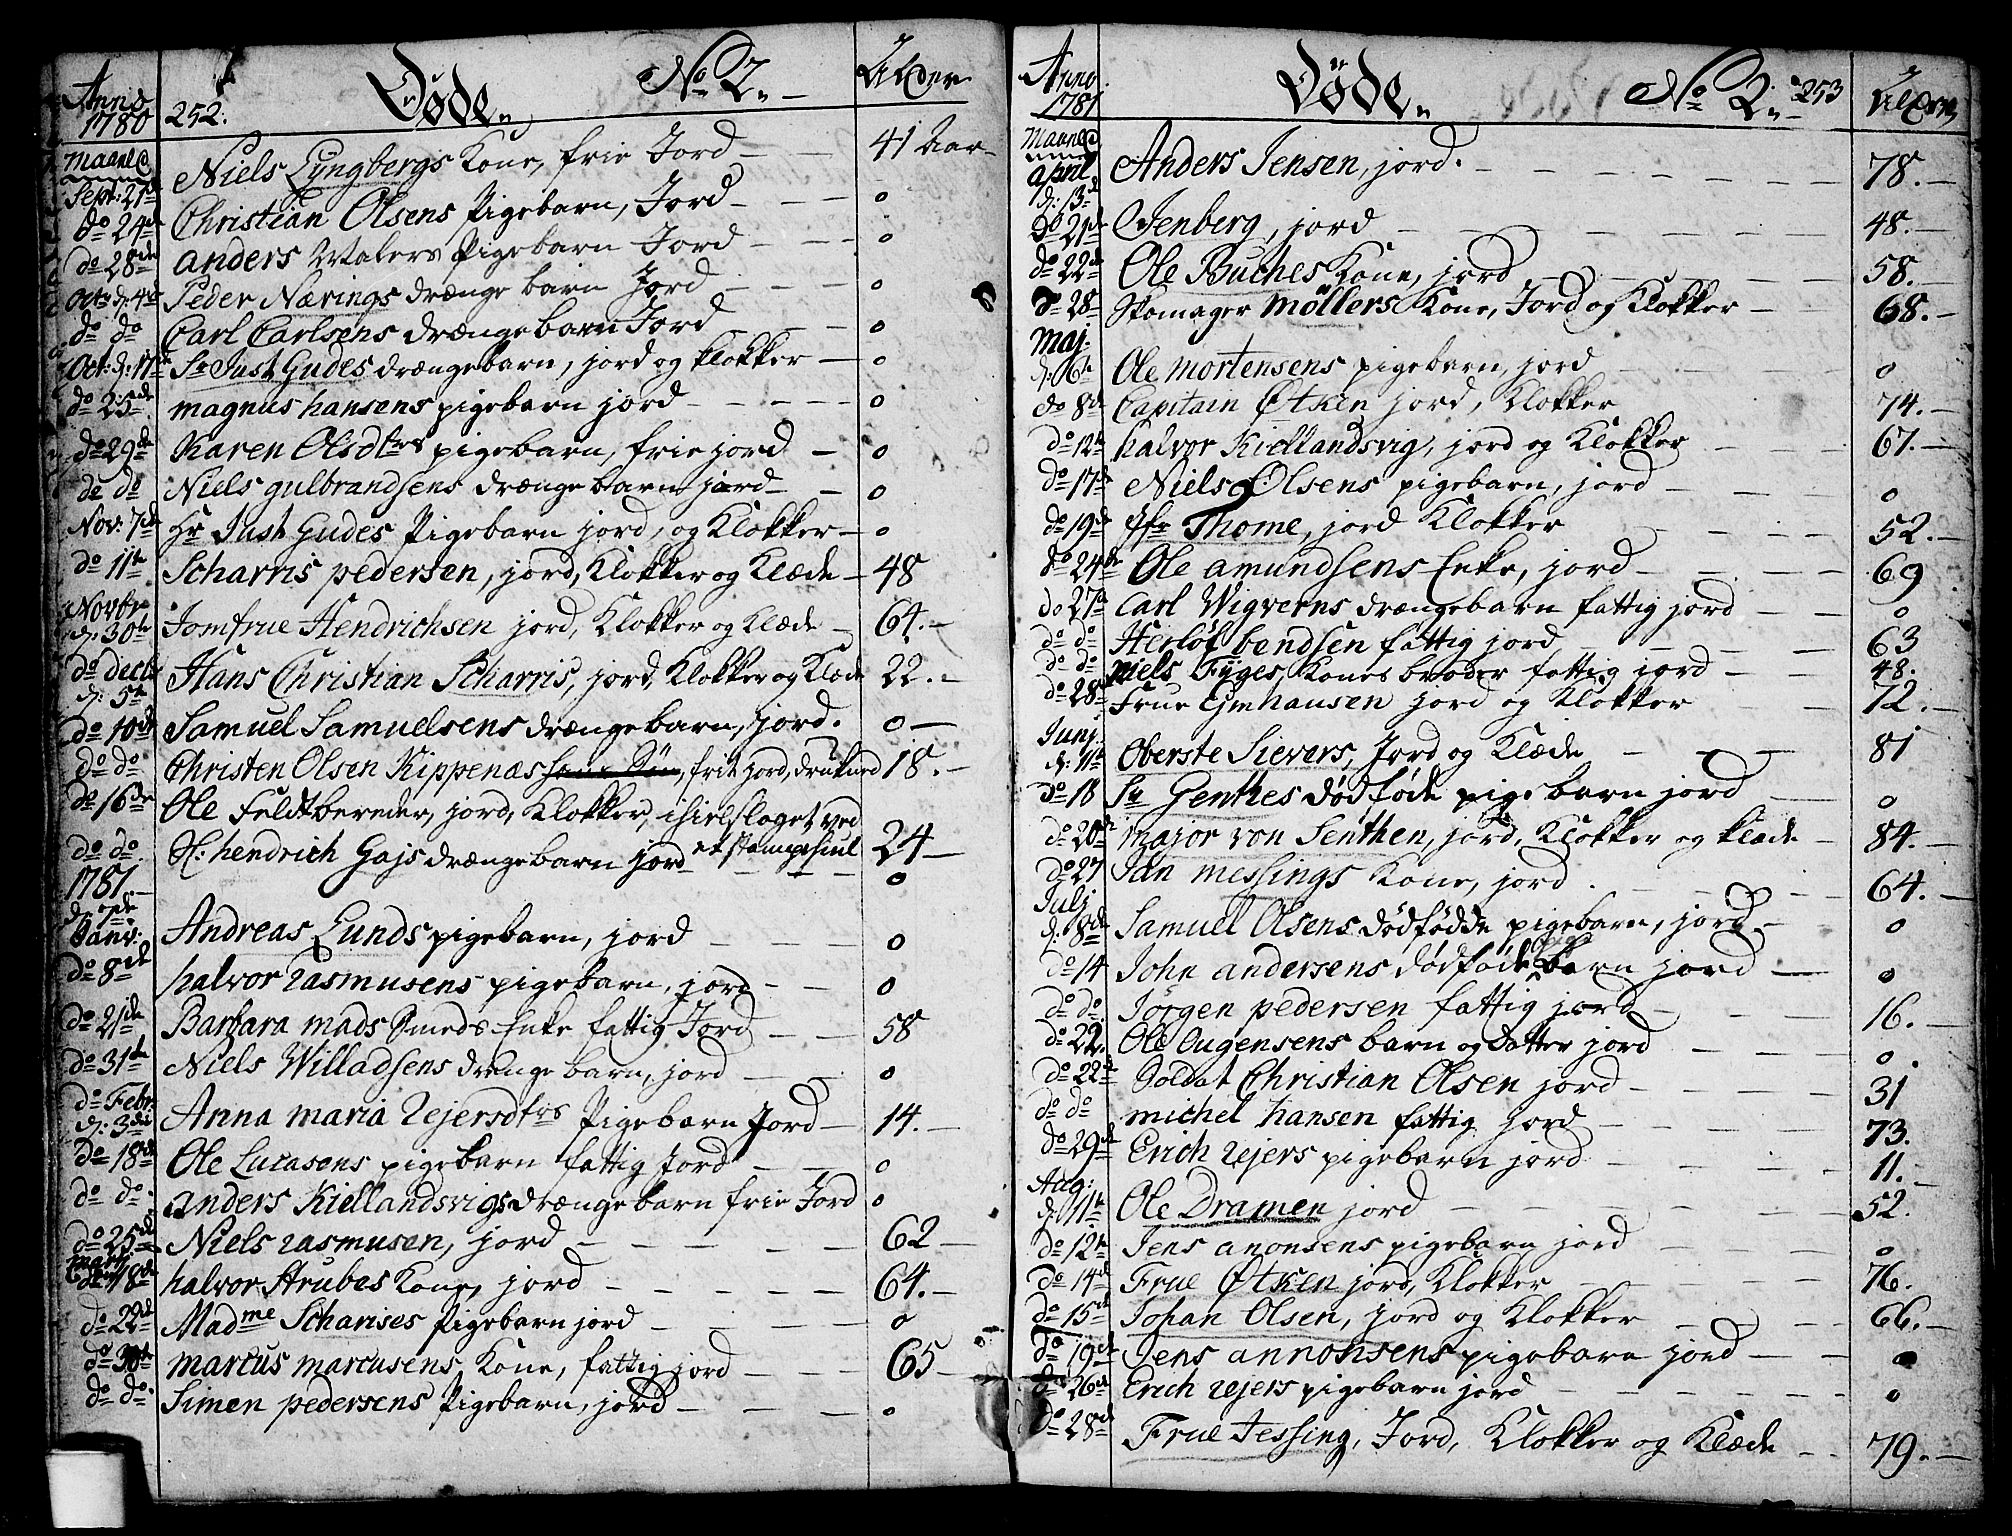 Anno 1780 252. Døde No 2. Alder
Maaned
Sept: 21de Niels Lyngbergs Kone, frie Jord 41 Aar
do 24de Christian Olsens Pigebarn, Jord o
do 28de anders Malers Pigebarn Jord o
Octr d: 4de Peder Nærings drænge barn Jord o
do do Carl Carlsens drængebarn Jord o
Oct: d: 17de Sr Just Gudes drængebarn, jord og klokker o
do 25de magnus hansens pigebarn jord o
do 29de Karen Olsdtrs pigebarn, frie jord o
do do Niels gulbrandsens drænge barn jord o
Nov: 7de Hr Just Gudes Pigebarn jord, og Klokker o
do 11te Scharris pedersen, jord, Klokker og Klæde 48
Novbr d: 30te Jomfrue Hendrichsen jord, Klokker og Klæde 64.
do decbr d: 5te Hans Christian Scharris, jord, Klokker og Klæde 22.
do 10de Samuel Samuelsens drængebarn, jord. o
do do Christen Olsen Kippenæs, frit jord, druknet 18.
do 16de Ole Feldtbereder, jord, Klokker, ihielslaget ved
et stampehiul 24
do do H: hendrich Gajs drængebarn jord o
1781
d: 7de Janv: Andreas Lunds pigebarn, jord o
do 8de halvor rasmusens pigebarn, jord o
do 21de Barbara mads Smeds Enke fattig Jord 58
do 31te Niels Willadsens drænge barn, jord o
do Febr. d: 3die Anna maria rejersdtrs Pigebarn Jord 14.
do 18de Ole Lucasens pigebarn fattig Jord o
do do anders Kiellandsvigs drængebarn frie Jord o
do 25de Niels rasmusen, jord 62
do 18de halvor Strubes Kone, jord 64.
do 22de Madme Scharises Pigebarn jord o
do 30te marcus marcusens Kone, fattig jord 65
do do Simen pedersens Pigebarn, jord o
Anno 1781 Døde No 2. 253 Alder
Maaned
april d: 13de Anders Jensen, jord. 78.
do 21de Jenberg, jord 48.
do 22de Ole Buches Kone, jord 58.
do 28de Skomager möllers Kone, Jord og Klokker 68.
Maj.
d: 6te Ole mortensens pigebarn, jord o
do 8de Capitain Øtken jord, Klokker 74.
do 12te halvor Kiellandsvig, jord og Klokker 67.
do 17de Niels Olsens pigebarn, jord o
do 19de Jfr Thome, jord Klokker 52.
do 24de Ole amundsens Enke, jord 69
do 27de Carl Wigverns drængebarn fattig jord o
do do Herlöf bendsen fattig jord 63
do do niels Fyges, Kones broder fattig jord 48.
do 28de Frue Ejmhausen jord og Klokker 72.
Junj.
d: 11te Oberste Sievers, Jord og Klæde 81
do 18 Sr Genthes dødføde pige barn jord o
do 20de major von Senthen, jord, Klokker og klæde 84.
do 27 Jan messings Kone, jord 64.
Julj
d: 8de Samuel Olsens dødfødde pigebarn, jord o
do 14 John andersens dødføde barn jord o
do do Jørgen pedersen fattig jord 16.
do 22. Ole Eugensens barn og datter jord o
do 22de Soldat Christian Olsen jord 31
do do michel hansen fattig jord 73.
do 29de Erich rejers pigebarn jord 11.
Aug:
d: 11te Ole Dramen jord 52.
do 12te Jens anonsens pigebarn jord o
do 14de Frue Øtken jord, Klokker 76.
do 15de Johan Olsen, jord og Klokker 66.
do 19de Jens annonsens pigebarn jord o
do 26de Erich rejers pigebarn jord o
do 28de Frue Jessing, Jord, Klokker og Klæde 79.